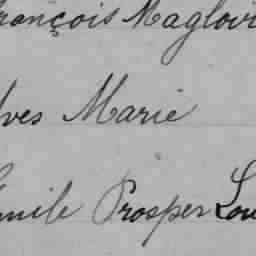 François Magloir
Yves Marie
Emile Prosper Lou